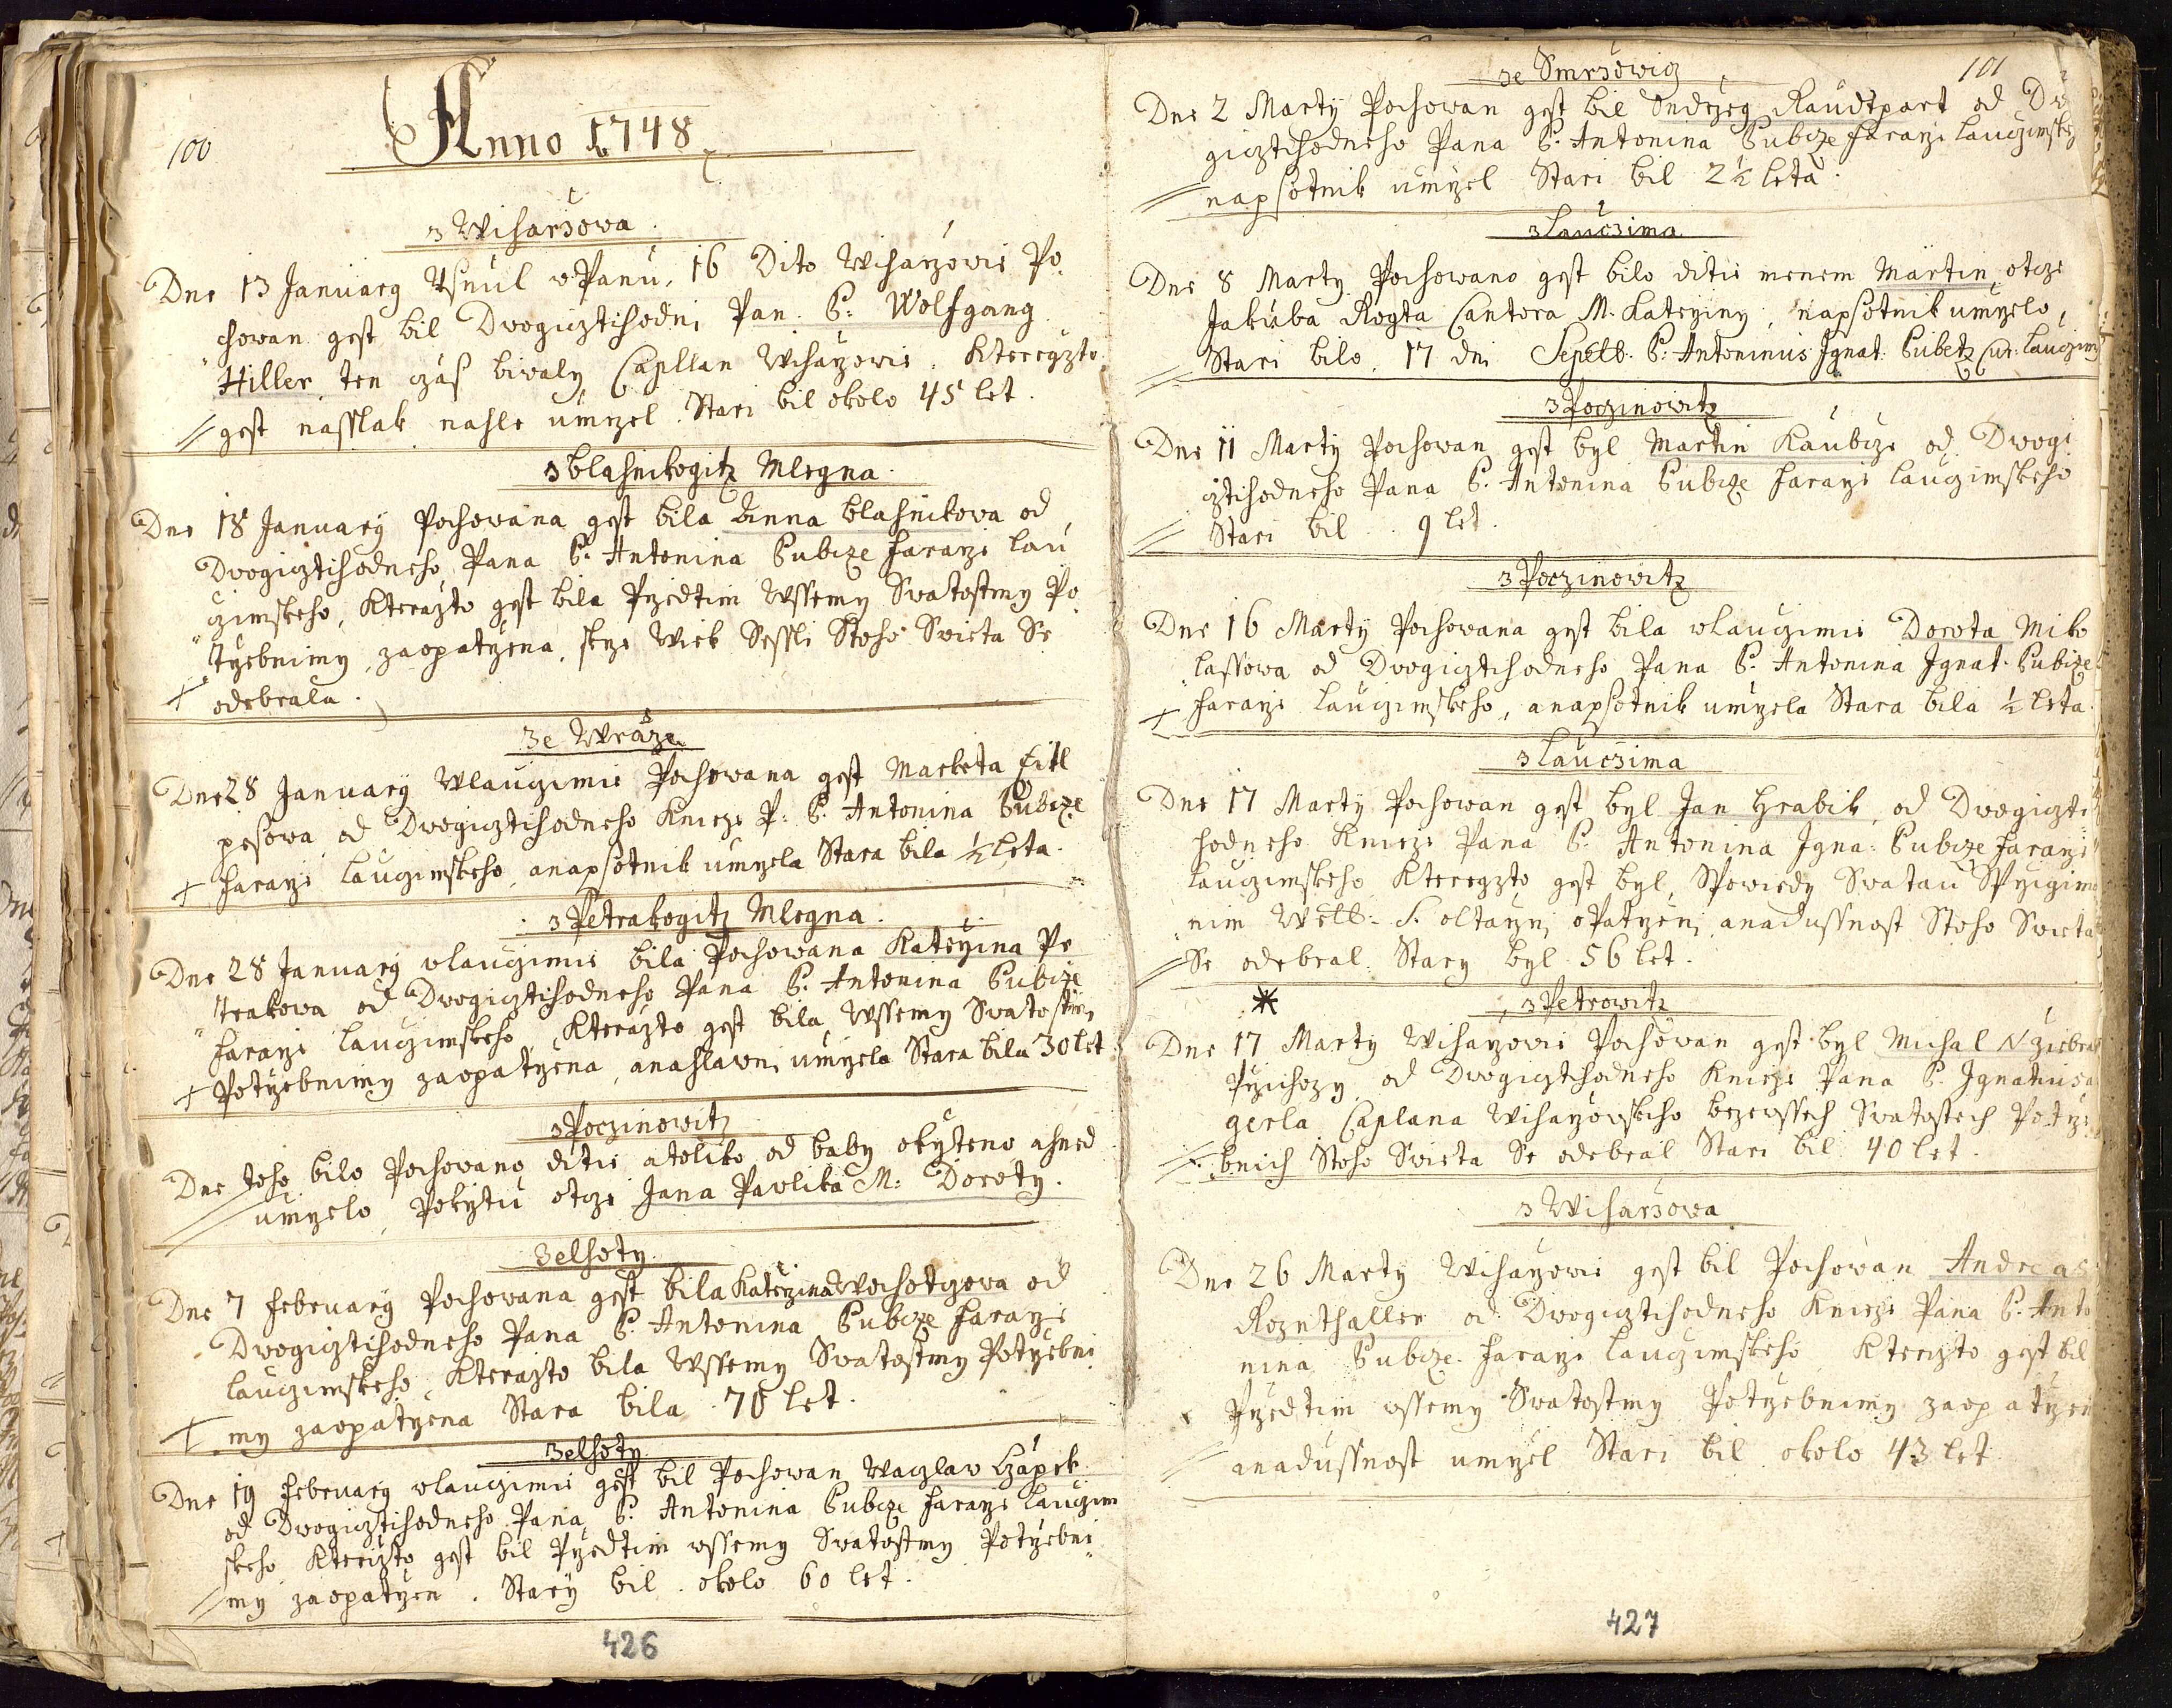 100
Anno 1748
z Wiharzowa.
Dne 13 January Usnul w Panu, 16 Dito Wiharzowie Po
chowan gest bil Dwogicztihodni Pan. P: Wolfgang
Hiller ten czas biwaly Capllan Wiharzowie. Kteregzto
gest nasslak nahle umrzel. Stari bil okolo 45 let.
z blahnikogitz Mlegna.
Dne 18 January Pochowana gest bila Anna blahnikowa od
Dwogicztihodneho Pana P. Antonina Pubcze Fararze Lau
czimskeho, Kterazto gest bila Przedtim Wssemy Swatostmy Po
trzebnimy zaopatrzena, skrze Wiek Sessli Stoho Swieta Se
odebrala.
Ze Wraze
Dne 28 January Wlauczimie Pochowana gest Marketa Eitl
pesowa od Dwogicztihodneho Knieze P: P. Antonina Pubcze
Fararze Lauczimskeho, anapsotnik umrzela Stara bila ½ leta.
z Petrakogitz Mlegna.
Dne 28 January wlauczimie bila Pochowana Katerzina Pe
trakowa od Dwogicztihodneho Pana P. Antonina Pubcze
Fararze Lauczimskeho, Kterazto gest bila Wssemy Swatostmi
Potrzebnimy zaopatrzena, anahlawni umrzela Stara bila 30 let
z Poczinowitz
Dne toho bilo Pochowano ditie atoliko od baby okrzteno ahned
umrzelo, Pokrztu otcze Jana Pavlika M: Doroty.
Zelhoty.
Dne 7 February Pochowana gest bila Katerzina Wochotzowa od
Dwogicztihodneho Pana P. Antonina Pubcze Fararze
Lauczimskeho, Kterazto bila Wssemy Swatostmy Potrzebni
my zaopatrzena Stara bila 78 let.
Zelhoty
Dne 19 February wlauczimie gest bil Pochowan Waczlaw Czapek
od Dwogicztihodneho Pana P. Antonina Pubcze Fararze Lauczim
skeho Kterizto gest bil Przedtim wssemy Swatostmy Potrzebni
my zaopatrzen. Stary bil okolo 60 let.
426
101
ze Smrzowicz
Dne 2 Marty Pochowan gest bil Ondrzeg Raudtpart od Dw
gicztihodneho Pana P. Antonina Pubcze Fararze Lauczimsky
napsotnik umrzel Stari bil 2½ leta.
z Lauczima
Dne 8 Marty Pochowano gest bilo ditie menem Martin otcze
Jakuba Rogta Cantora M. Katerziny, napsotnik umrzelo,
Stari bilo 17 dni Sepelt. P. Antoninus Ignat: Pubetz Cur: Lauczim
z Poczinowitz
Dne 11 Marty Pochowan gest byl Martin Kaubcze od Dwogi
cztihodneho Pana P. Antonina Pubcze Fararze Lauczimskeho
Stari bil 9 let.
z Poczinowitz
Dne 16 Marty Pochowana gest bila wlauczimie Dorota Miko
lassowa od Dwogicztihodneho Pana P. Antonina Ignat. Pubcze
Fararze Lauczimskeho, anapsotnik umrzela Stara bila ½ leta.
z Lauczima
Dne 17 Marty Pochowan gest byl Jan Hrabik, od Dwogiczti
hodneho Knieze Pana P. Antonina Igna: Pubcze Fararze
Lauczimskeho Kteregzto gest byl, Spowiedy Swatau Sprzigima
nim Wel: S. oltarzni oPatrzeni anadussnost Stoho Swieta
Se odebral. Stary byl 56 let.
z Petrowitz
Dne 17 Marty Wiharzowie Pochowan gest byl Michal N ziebrak
Przichozy od Dwogicztihodneho Knieze Pana P. Ignatiusa
gerla Caplana Wiharzowskeho bezewssech Swatostech Potrze
bnich Stoho Swieta Se odebral Stari bil 40 let.
z Wiharzowa
Dne 26 Marty Wiharzowie gest bil Pochowan Andreas
Roznthaller od Dwogicztihodneho Knieze Pana P. Anto
nina Pubcze Fararze Lauczimskeho Kterizto gest bil
Przedtim wssemy Swatostmy Potrzebnimy zaopatrzen
anadussnost umrzel Stari bil okolo 43 let
427